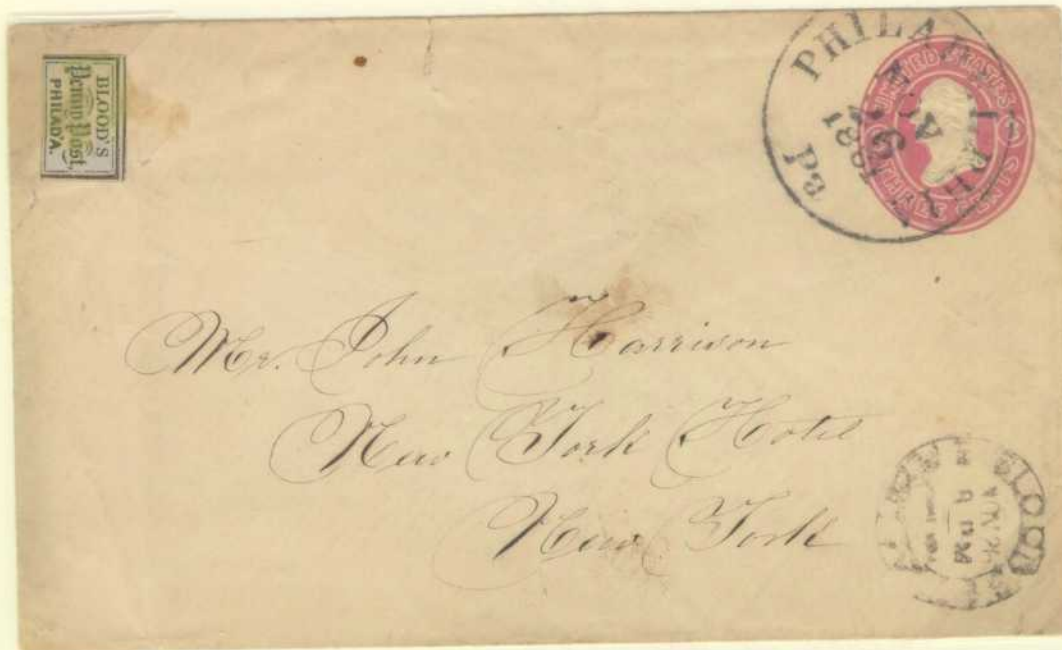 BLOOD'S
Penny Post,
PHILAD'A.
PHILA
Pa
UNITED STATES
THREE CENTS
Mr. John Harrison
New York Hotel
New York
BLOOD